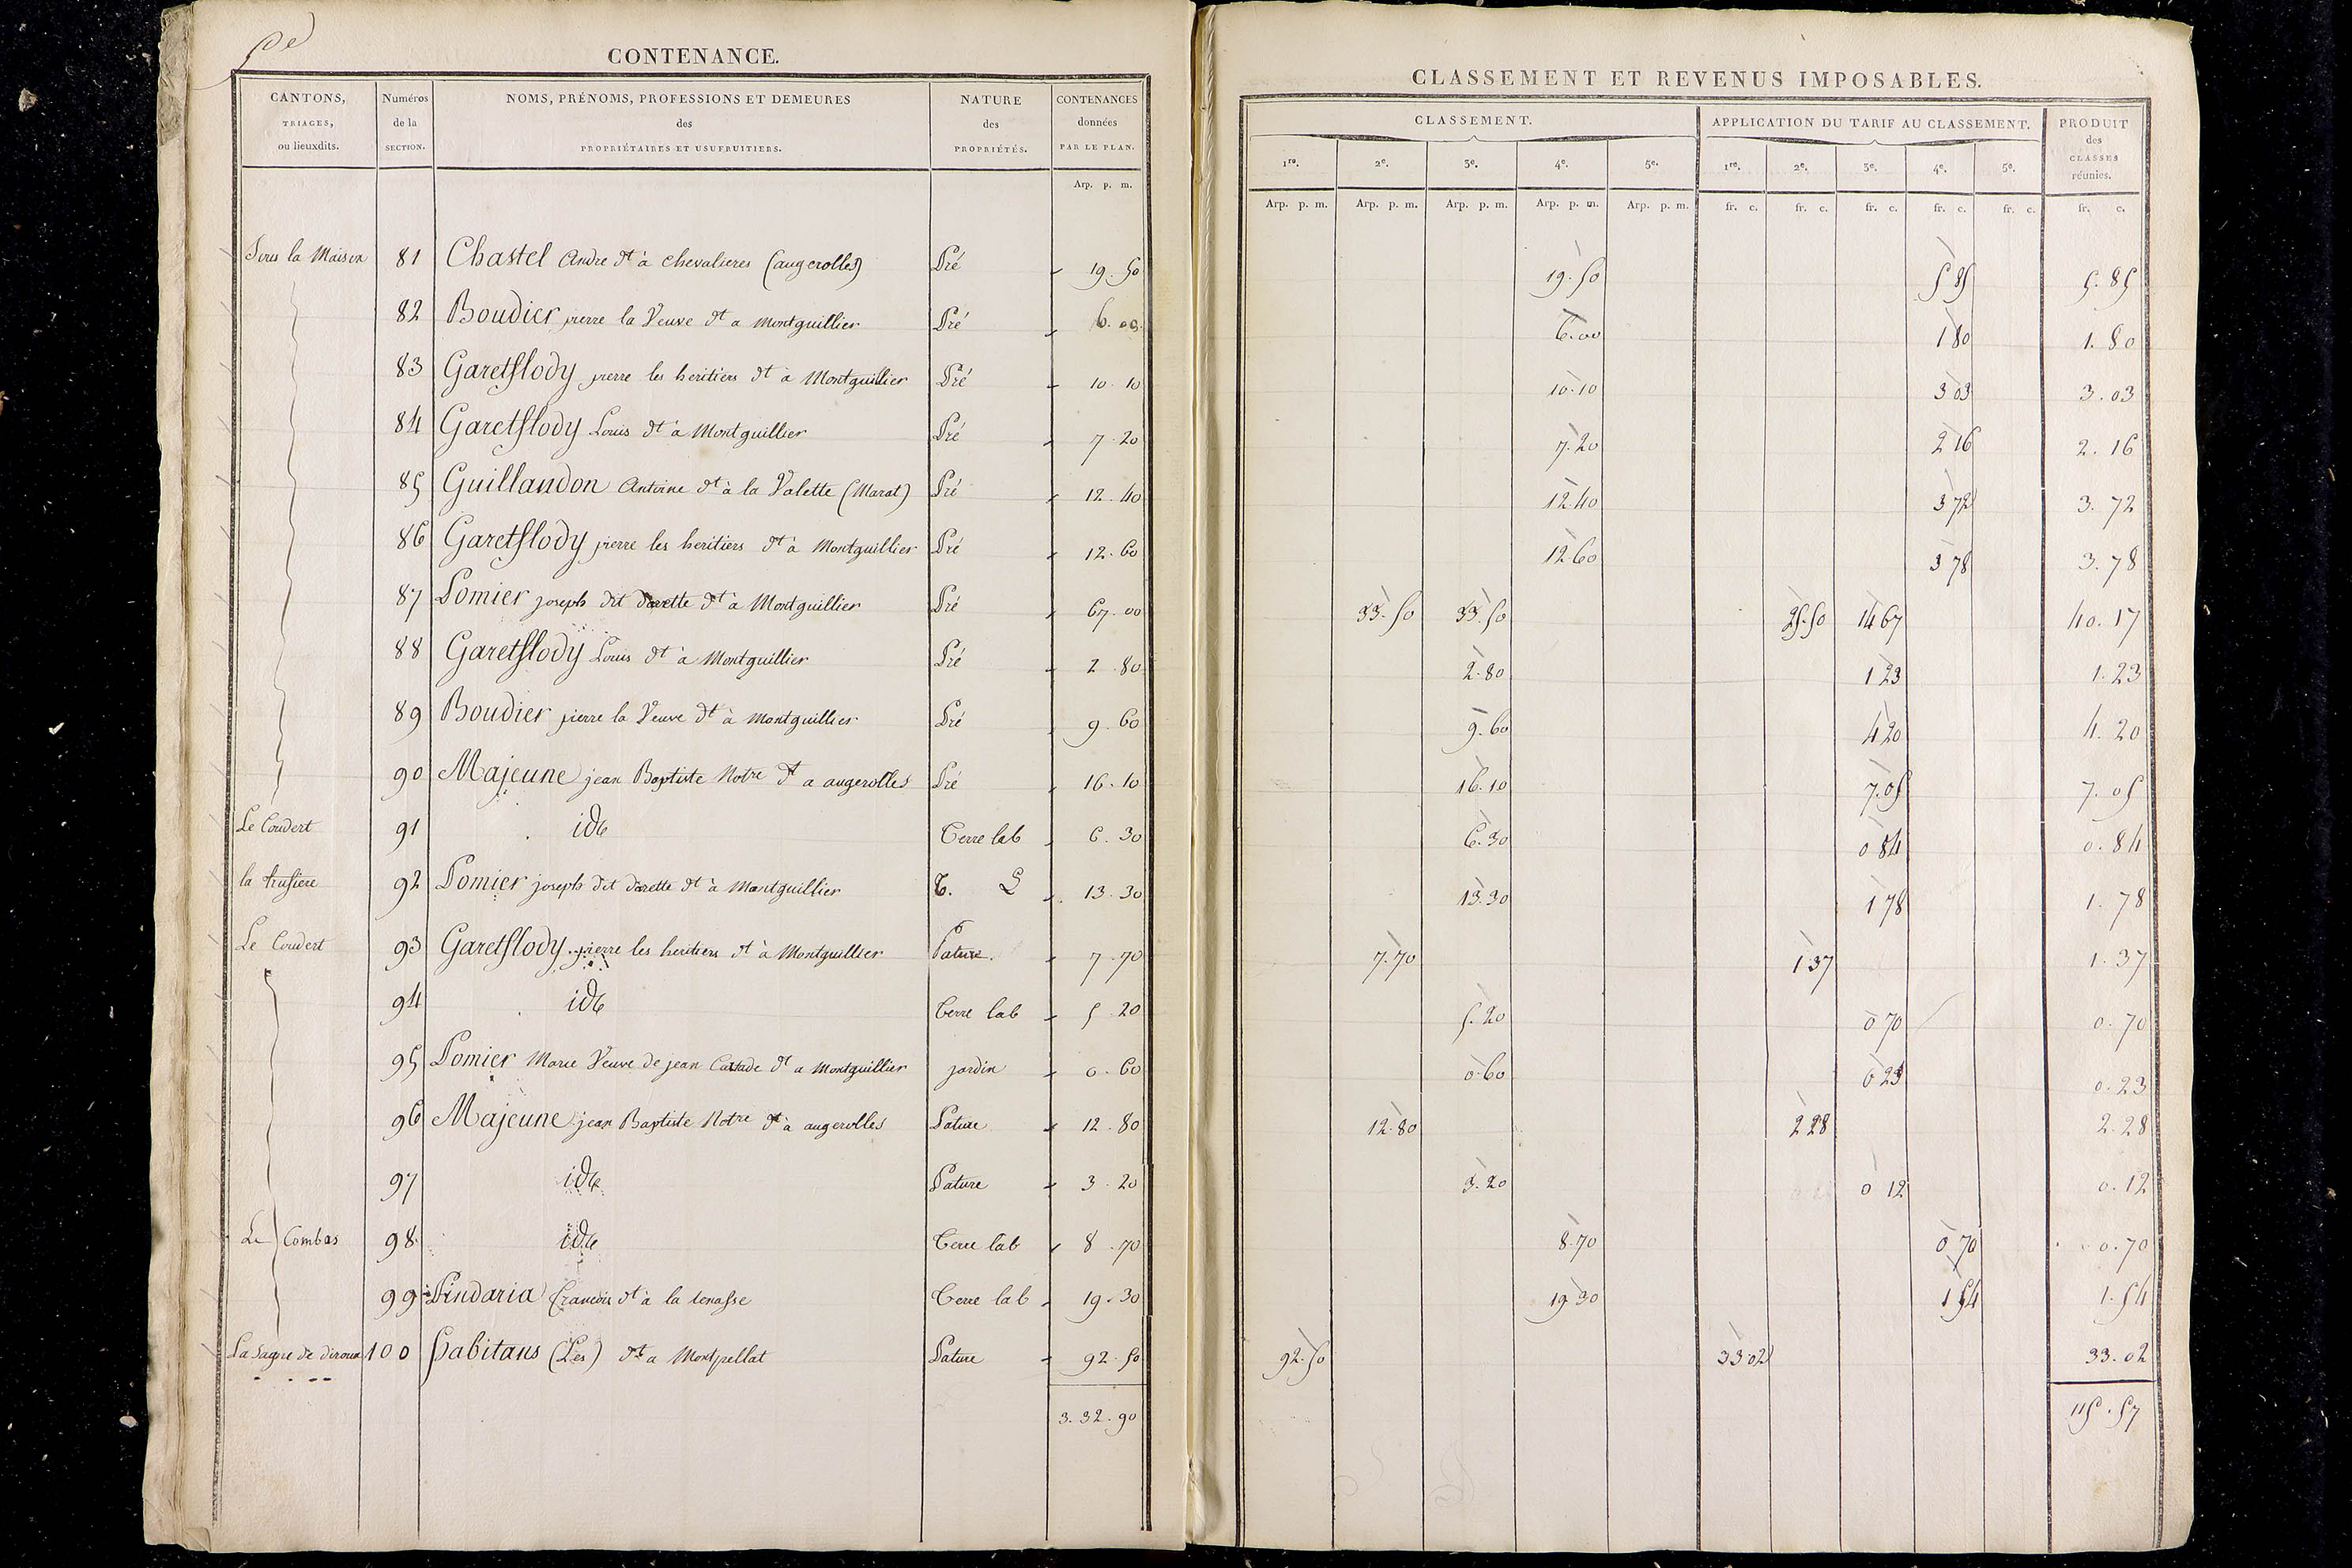 CONTENANCE.
CANTONS, TRIAGES, ou lieuxdits. Numéros de la SECTION. NOMS, PRÉNOMS, PROFESSIONS ET DEMEURES des PROPRIÉTAIRES ET USUFRUITIERS. NATURE des PROPRIÉTÉS. CONTENANCES données PAR LE PLAN.
Arp. p. m.
Sous la Maison 81 Chastel Andre dt à chevalieres (augerolles) Pré 19.50
82 Boudier pierre la Veuve dt a Montguillier Pré 6.00
83 Garetflody pierre les heritiers dt à Montguillier Pré 10.10
84 Garetflody Louis dt a Montguillier Pré 7.20
85 Guillandon Antoine dt à la Valette (Marat) Pré 12.40
86 Garetflody pierre les heritiers dt à Montguillier Pré 12.60
87 Pomier joseph dit dorette dt à Montguillier Pré 67.00
88 Garetflody Louis dt à Montguillier Pré 2.80
89 Boudier pierre la Veuve dt à Montguillier Pré 9.60
90 Majeune jean Baptiste Notre dt a augerolles Pré 16.10
Le Coudert 91 ide Terre lab 6.30
la trusiere 92 Pomier joseph dit dorette dt à Montguillier T. L 13.30
Le Coudert 93 Garetflody pierre les heritiers dt à Montguillier Pature 7.70
94 ide Terre lab 5.20
95 Pomier Marie Veuve de jean dt a Montguillier jardin 0.60
96 Majeune jean Baptiste Notre dt à augerolles Pature 12.80
97 ide Pature 3.20
Le Combas 98 ide Terre lab 8.70
99 Pindaria Francois dt à la tenasse Terre lab 19.30
La Sagne de 100 habitans (Les) dt a Montpellat Pature 92.50
3.32.90
CLASSEMENT ET REVENUS IMPOSABLES.
CLASSEMENT. APPLICATION DU TARIF AU CLASSEMENT. PRODUIT des CLASSES réunies.
1re. 2e. 3e. 4e. 5e. 1re. 2e. 3e. 4e. 5e.
Arp. p. m. Arp. p. m. Arp. p. m. Arp. p. m. Arp. p. m. fr. c. fr. c. fr. c. fr. c. fr. c. fr. c.
19.50 5 85 5.85
6.00 1 80 1.80
10.10 3 03 3.03
7.20 2 16 2.16
12.40 3 72 3.72
12.60 3 78 3.78
33.50 33.50 25.50 14 67 40.17
2.80 1 23 1.23
9.60 4 20 4.20
16.10 7.05 7.05
6.30 0 84 0.84
13.30 1 78 1.78
7.70 1 37 1.37
5.20 0 70 0.70
0.60 0 23 0.23
12.80 2 28 2.28
3.20 0 12 0.12
8.70 0 70 0.70
19.30 1 54 1.54
92.50 33 02 33.02
115.57